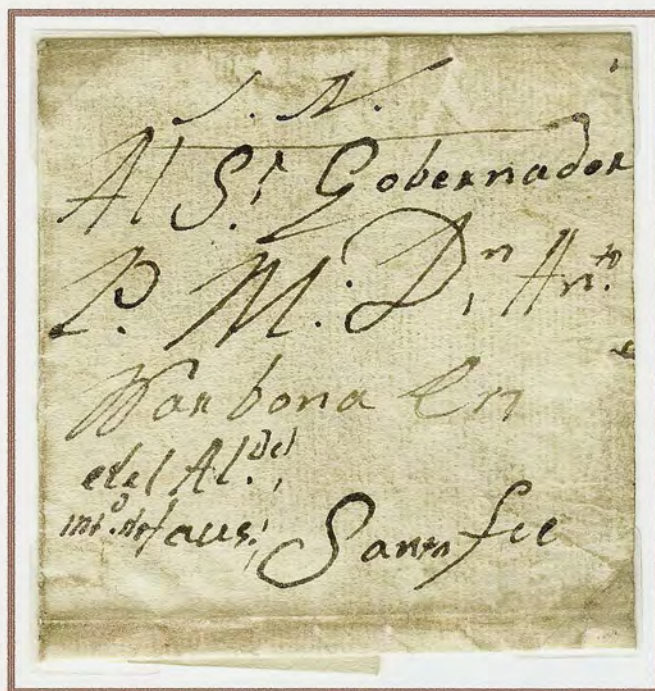 S. N.
Al S.r Gobernador
P. M. D.n Ant.o
Narbona En
del Al.
Santa fee